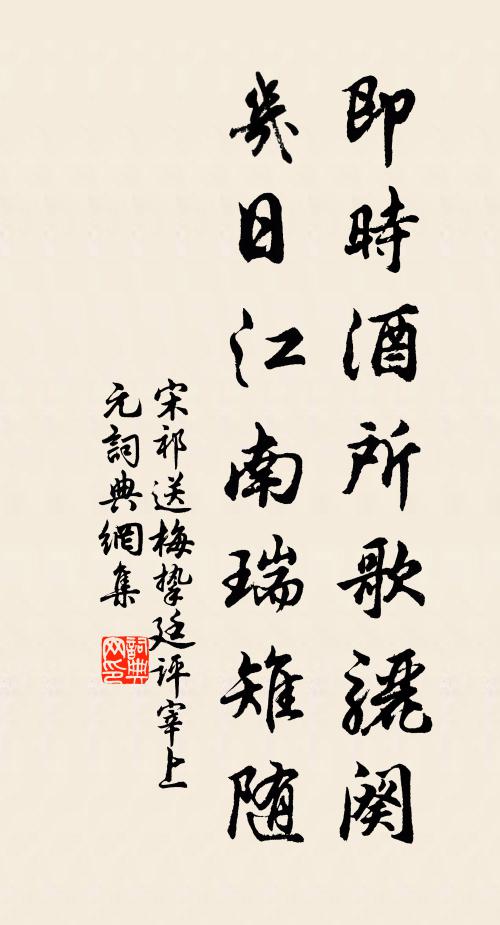 即時酒所歌驪闋
幾日江南瑞雉随
宋祁送梅摯廷評宰上
元詞典網集
詞典網印